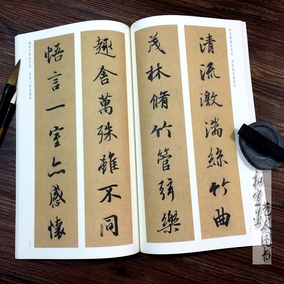 清流激湍絲竹曲
茂林脩竹管弦樂
趣舍萬殊雖不同
悟言一室亦感懷